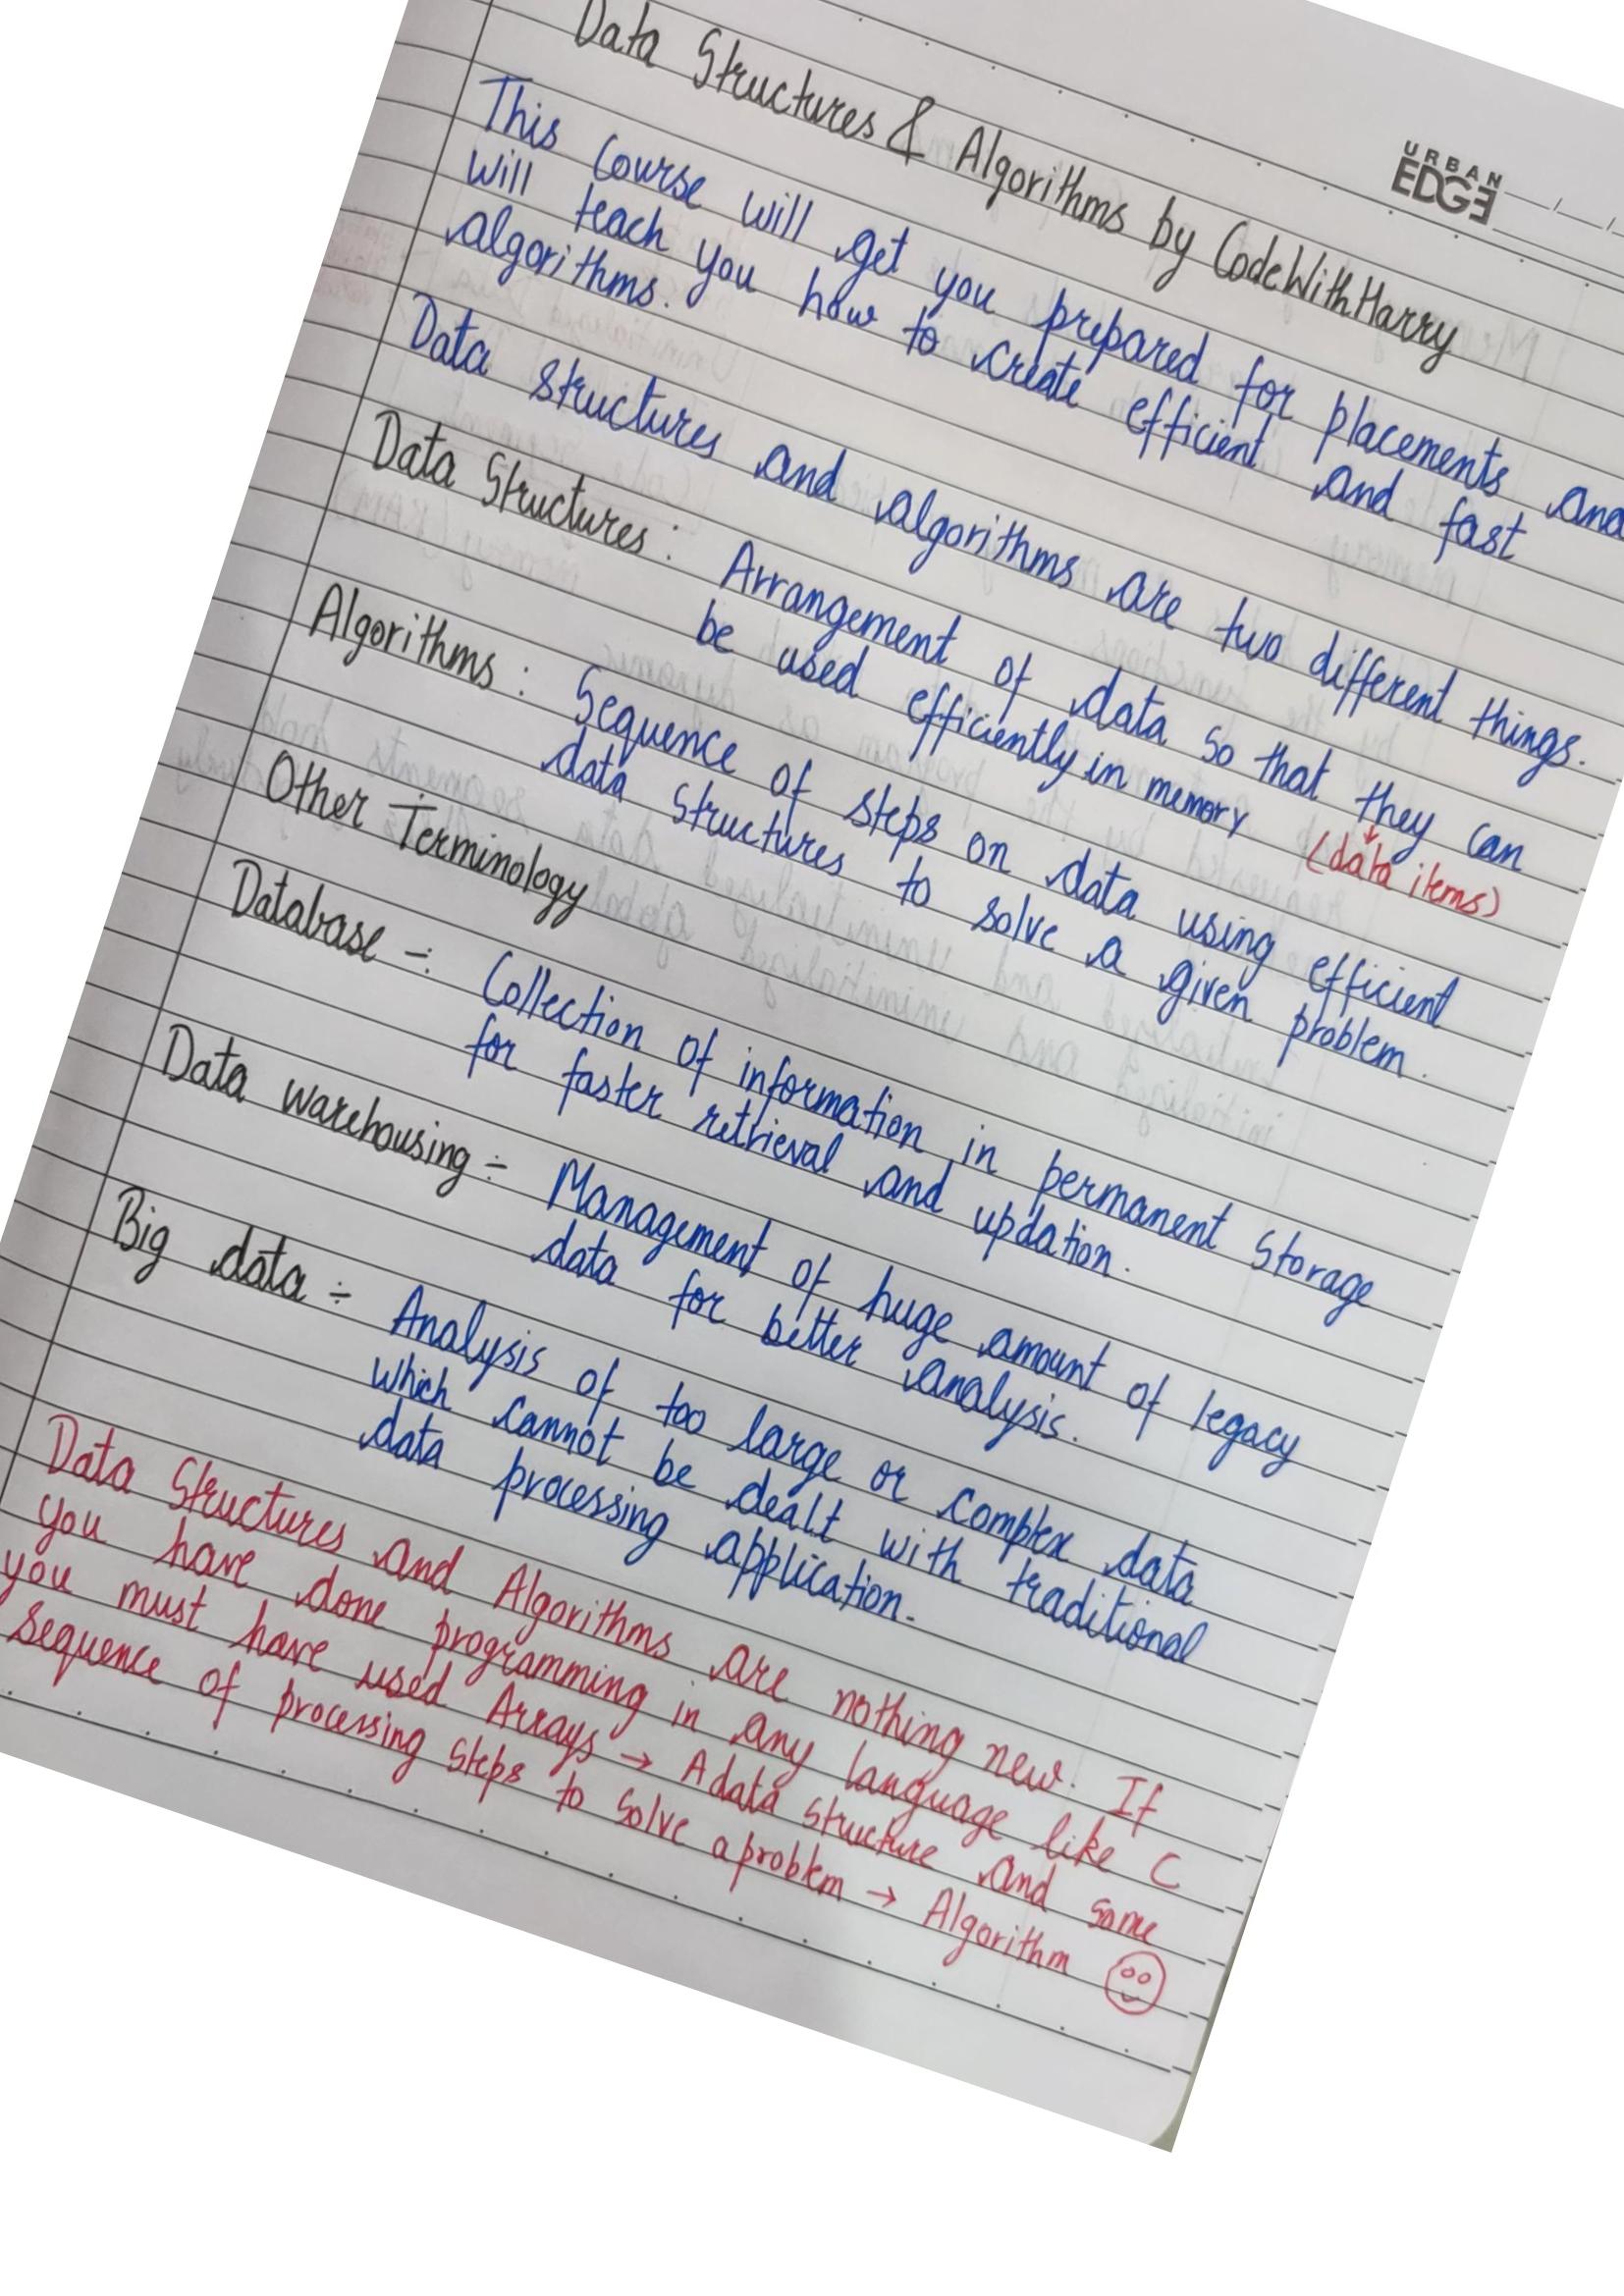 URBAN
EDGE
Data Structures & Algorithms by CodeWithHarry
This Course will get you prepared for placements and
will teach you how to create efficient and fast
algorithms.
Data structures and algorithms are two different things.
Data Structures : Arrangement of data so that they can
be used efficiently in memory (data items)
Algorithms : Sequence of steps on data using efficient
data structures to solve a given problem.
Other Terminology
Database -: Collection of information in permanent storage
for faster retrieval and updation.
Data warehousing ÷ Management of huge amount of legacy
data for better analysis.
Big data ÷ Analysis of too large or complex data
which cannot be dealt with traditional
data processing application.
Data Structures and Algorithms are nothing new. If
you have done programming in any language like C
you must have used Arrays → A data structure and some
sequence of processing steps to solve a problem → Algorithm